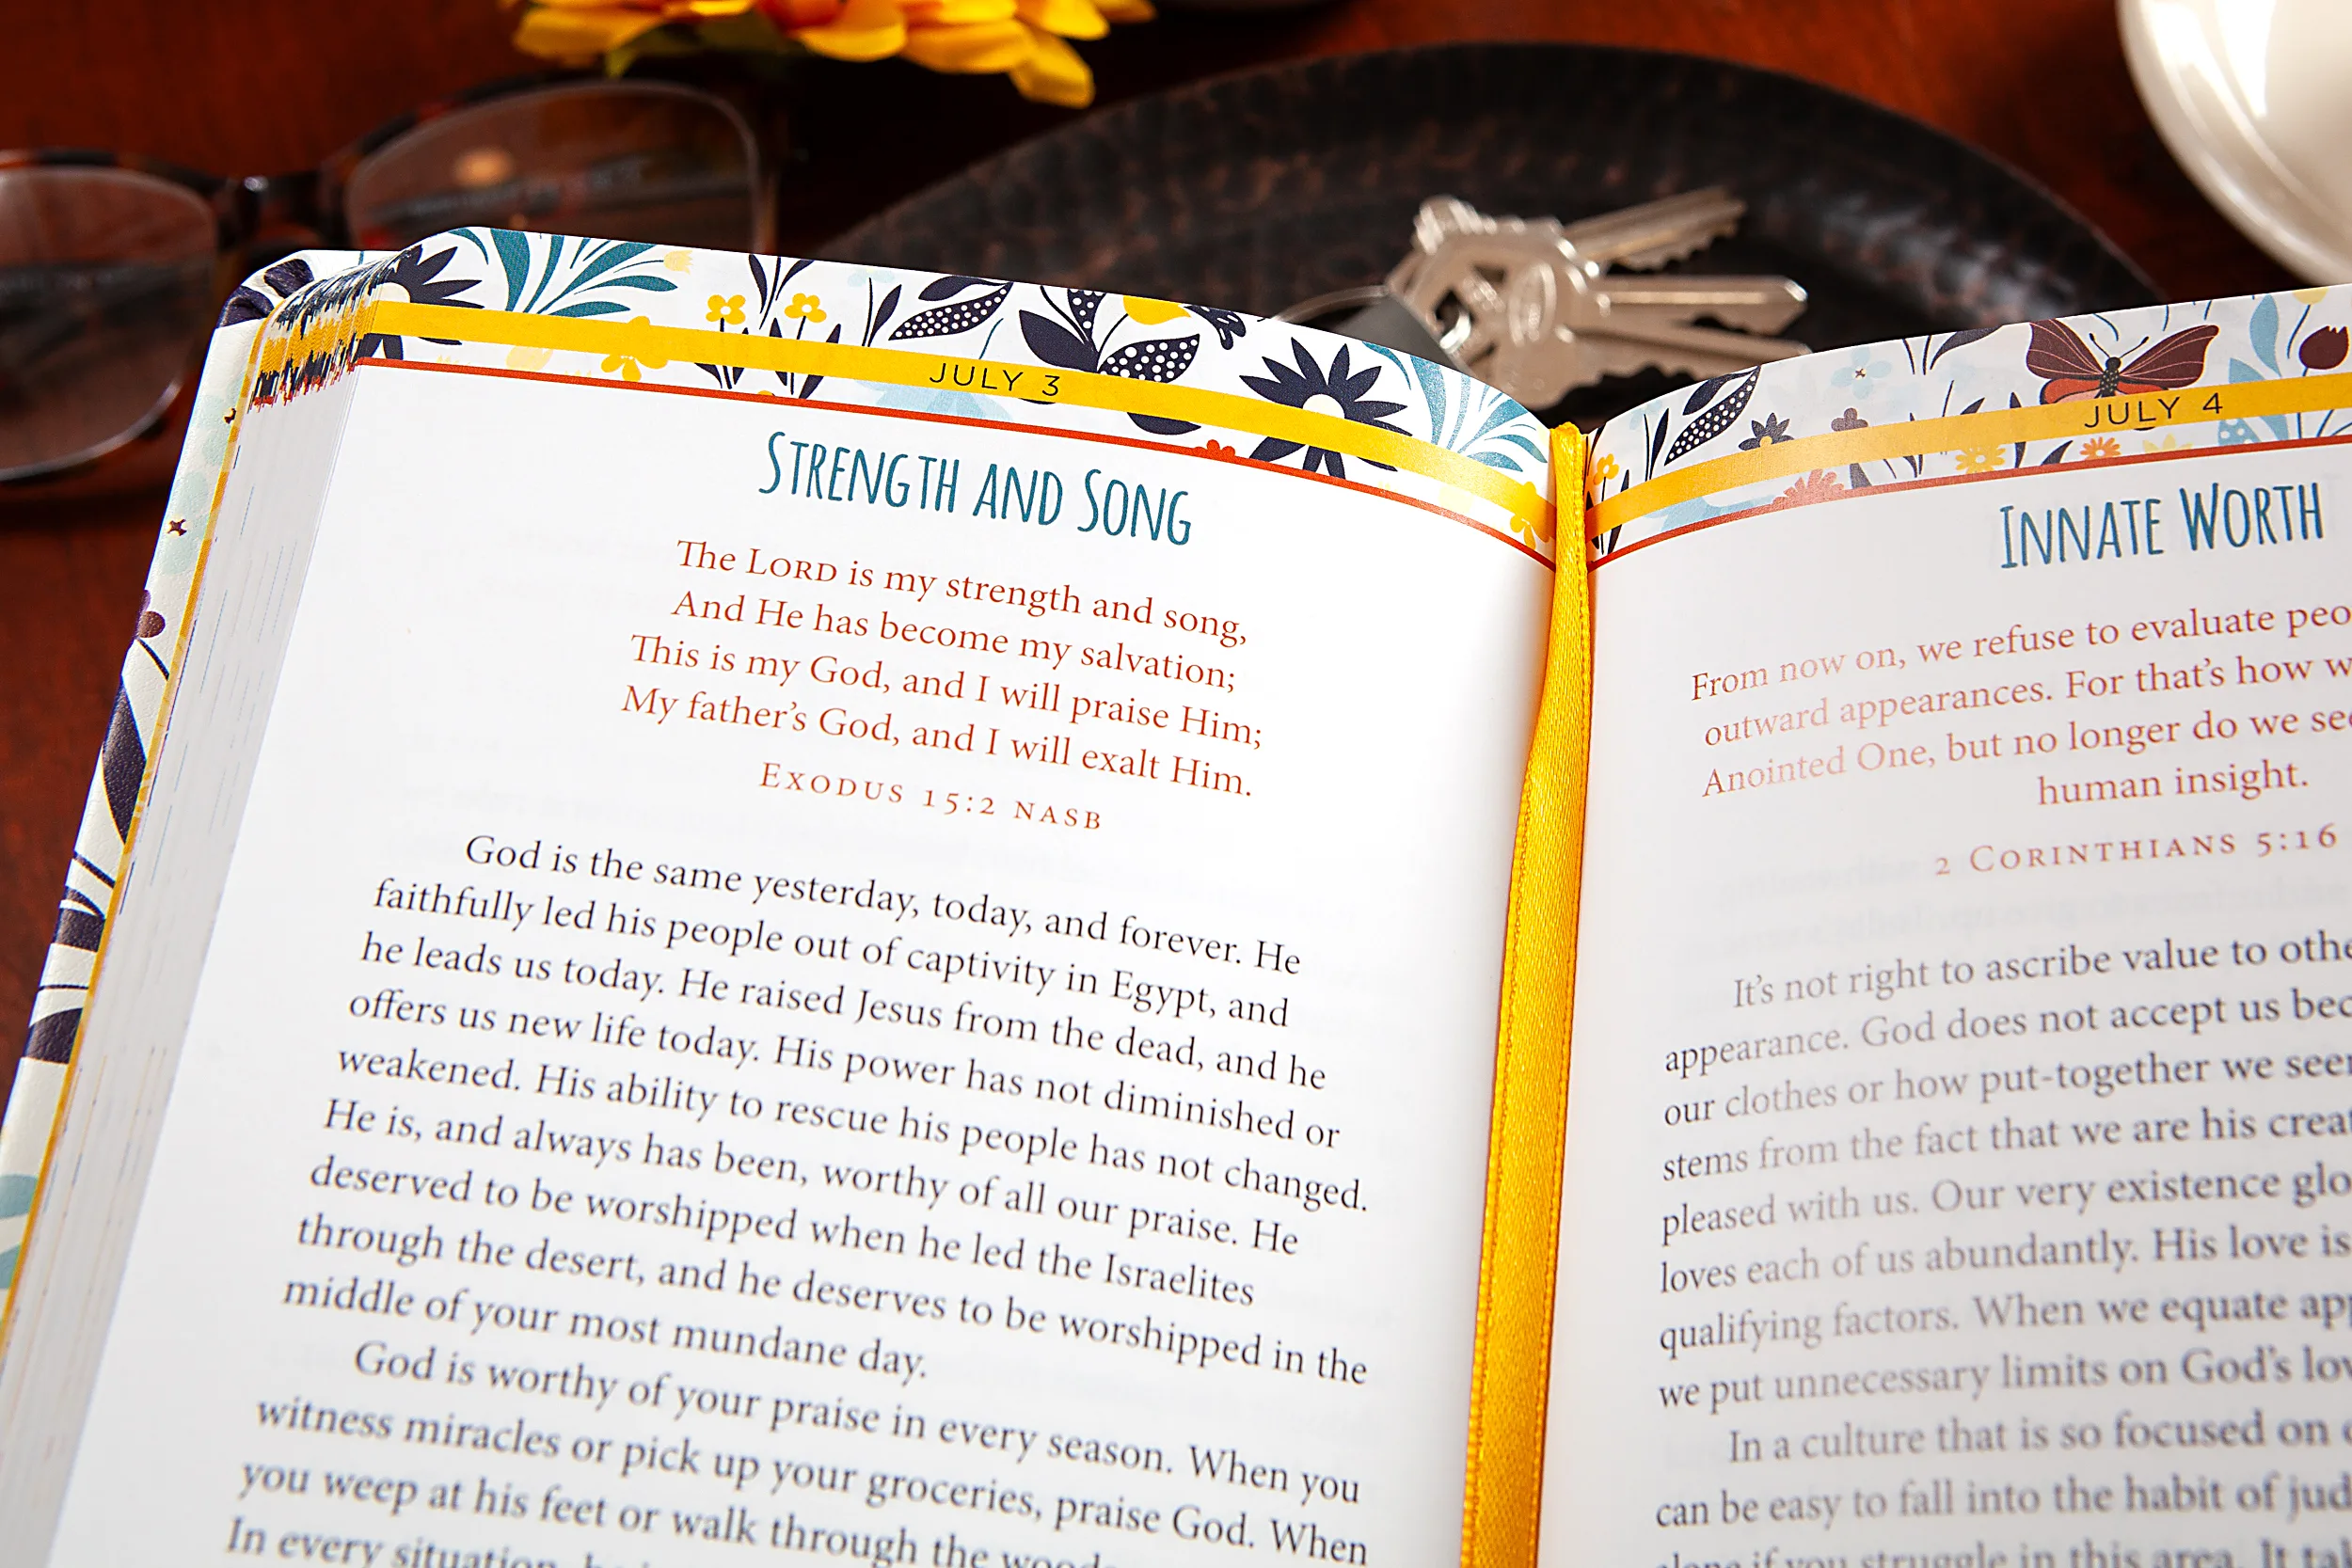 JULY 3
STRENGTH AND SONG
The LORD is my strength and song,
And He has become my salvation;
This is my God, and I will praise Him;
My father's God, and I will exalt Him.
EXODUS 15:2 NASB
God is the same yesterday, today, and forever. He
faithfully led his people out of captivity in Egypt, and
he leads us today. He raised Jesus from the dead, and he
offers us new life today. His power has not diminished or
weakened. His ability to rescue his people has not changed.
He is, and always has been, worthy of all our praise. He
deserved to be worshipped when he led the Israelites
through the desert, and he deserves to be worshipped in the
middle of your most mundane day.
God is worthy of your praise in every season. When you
witness miracles or pick up your groceries, praise God. When
you weep at his feet or walk through the
In every situation,
JULY 4
INNATE WORTH
From now on, we refuse to evaluate
outward appearances. For that's how
Anointed One, but no longer do we
human insight.
2 CORINTHIANS 5:16
It's not right to ascribe value to
appearance. God does not accept us
our clothes or how put-together we
stems from the fact that we are his
pleased with us. Our very existence
loves each of us abundantly. His love is
qualifying factors. When we equate
we put unnecessary limits on God's
In a culture that is so focused on
can be easy to fall into the habit of
alone if you struggle in this area. It